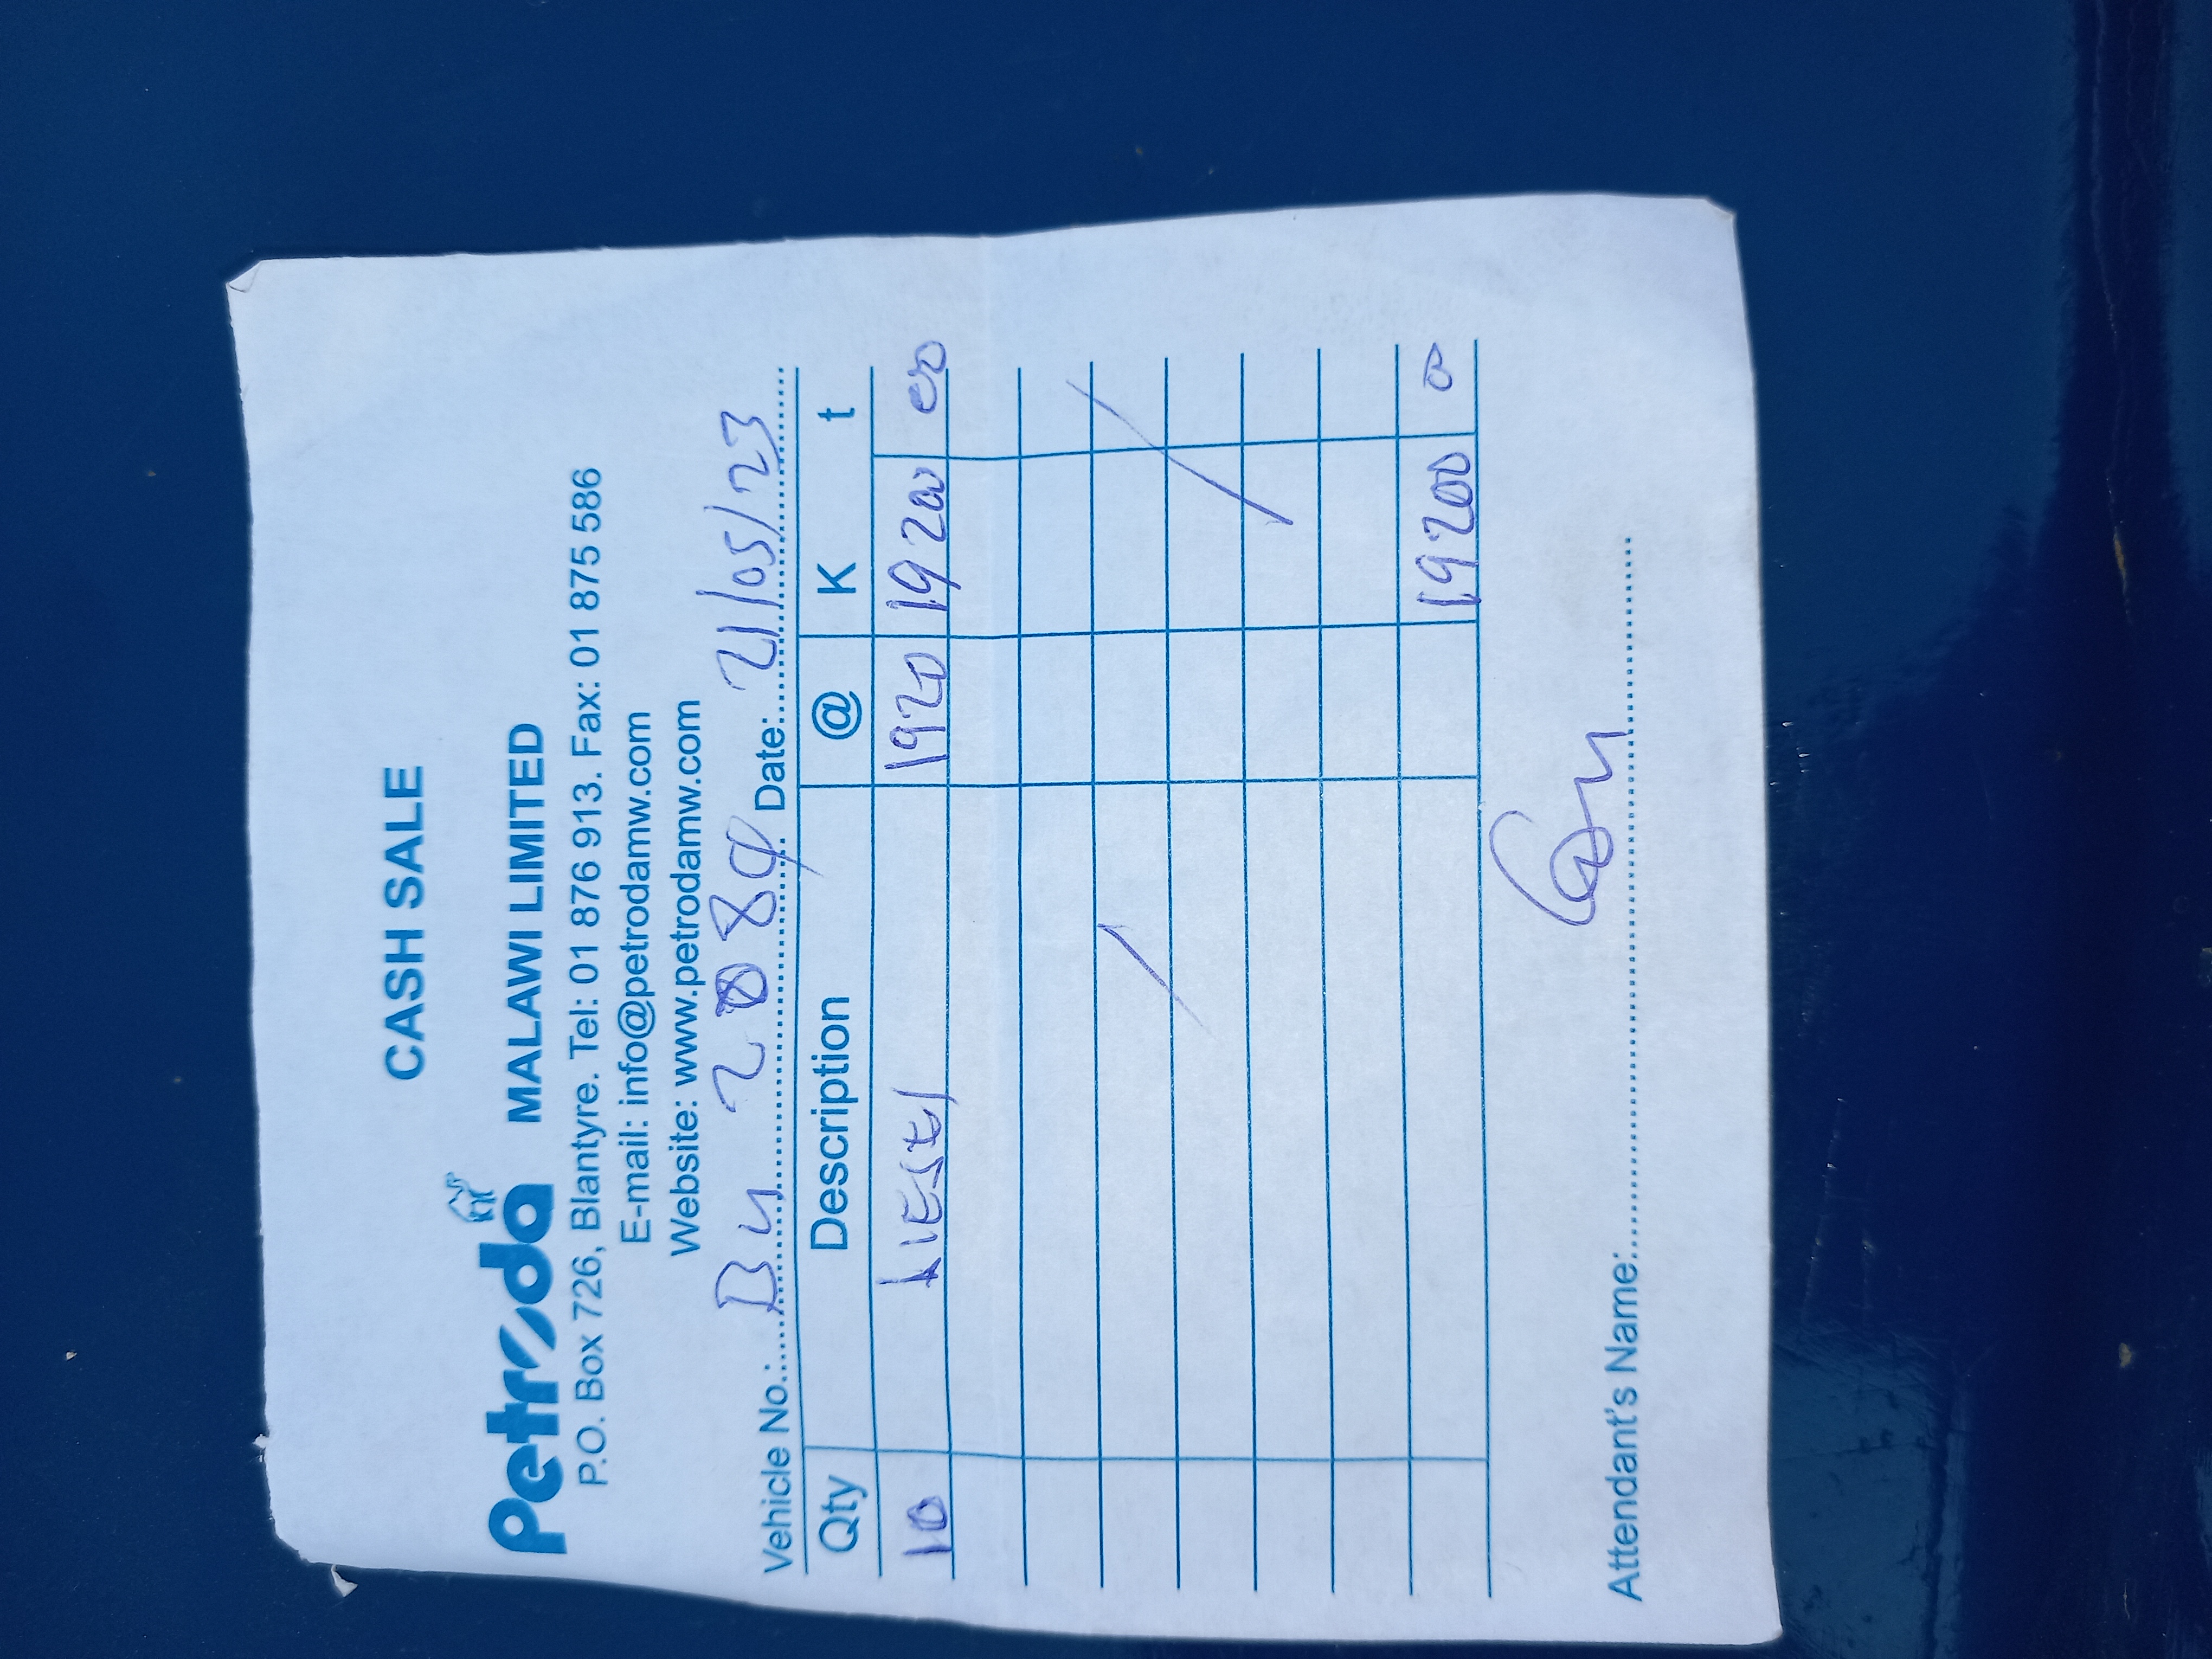 CASH SALE
Petroda MALAWI LIMITED
P.O. Box 726, Blantyre. Tel: 01 876 913. Fax: 01 875 586
E-mail: info@petrodamw.com
Website: www.petrodamw.com
Vehicle No.: Bu Date: 21/05/23
Qty Description @ K t
10 DIESEL 1920 19200 00
19200 00
Attendant's Name: